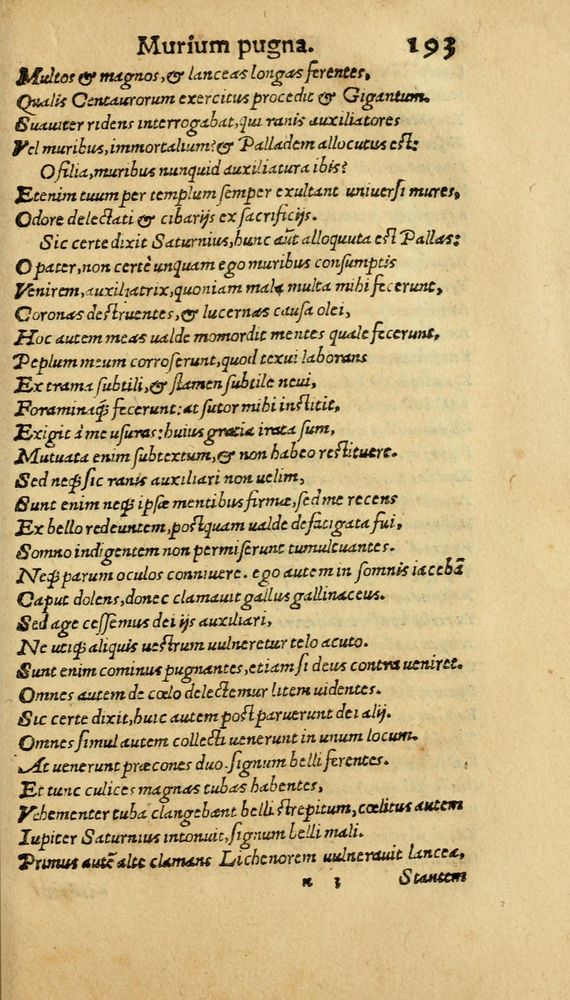 Murium pugna. 193
Multos & magnos, & lanceas longas ferentes,
Qualis Centaurorum exercitus procedit & Gigantum.
Suauiter ridens interrogabat, qui ranis auxiliatores
Vel muribus, immortalium? & Palladem allocutus est:
O filia, muribus nunquid auxiliatura ibis?
Etenim tuum per templum semper exultant uniuersi mures,
Odore delectati & cibarijs ex sacrificijs.
Sic certe dixit Saturnius, hunc aũt alloquuta est Pallas:
O pater, non certè unquam ego muribus consumptis
Venirem, auxiliatrix, quoniam mala multa mihi fecerunt,
Coronas destruentes, & lucernas causa olei,
Hoc autem meas ualde momordit mentes quale fecerunt,
Peplum meum corroserunt, quod texui laborans
Ex trama subtili, & stamen subtile neui,
Foraminaq́; fecerunt: at sutor mihi institit,
Exigit à me usuras: huius gratia irata sum,
Mutuata enim subtextum, & non habeo restituere.
Sed neq; sic ranis auxiliari non uelim,
Sunt enim neq; ipsæ mentibus firmæ, sed me recens
Ex bello redeuntem, postquam ualde defatigata fui,
Somno indigentem non permiserunt tumultuantes.
Neq; parum oculos conniuere. ego autem in somnis iacebã
Caput dolens, donec clamauit gallus gallinaceus.
Sed age cessemus dei ijs auxiliari,
Ne utiq; aliquis uestrum uulneretur telo acuto.
Sunt enim cominus pugnantes, etiam si deus contra ueniret.
Omnes autem de cœlo delectemur litem uidentes.
Sic certe dixit, huic autem post paruerunt dei alij.
Omnes simul autem collecti uenerunt in unum locum.
At uenerunt præcones duo signum belli ferentes.
Et tunc culices magnas tubas habentes,
Vehementer tuba clangebant belli strepitum, cœlitus autem
Iupiter Saturnius intonuit, signum belli mali.
Primus autẽ alte clamans Lichenorem uulnerauit lancea,
n 3 Stantem